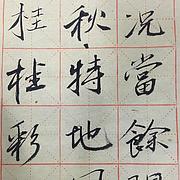 况當餘
秋特地
桂桂彩